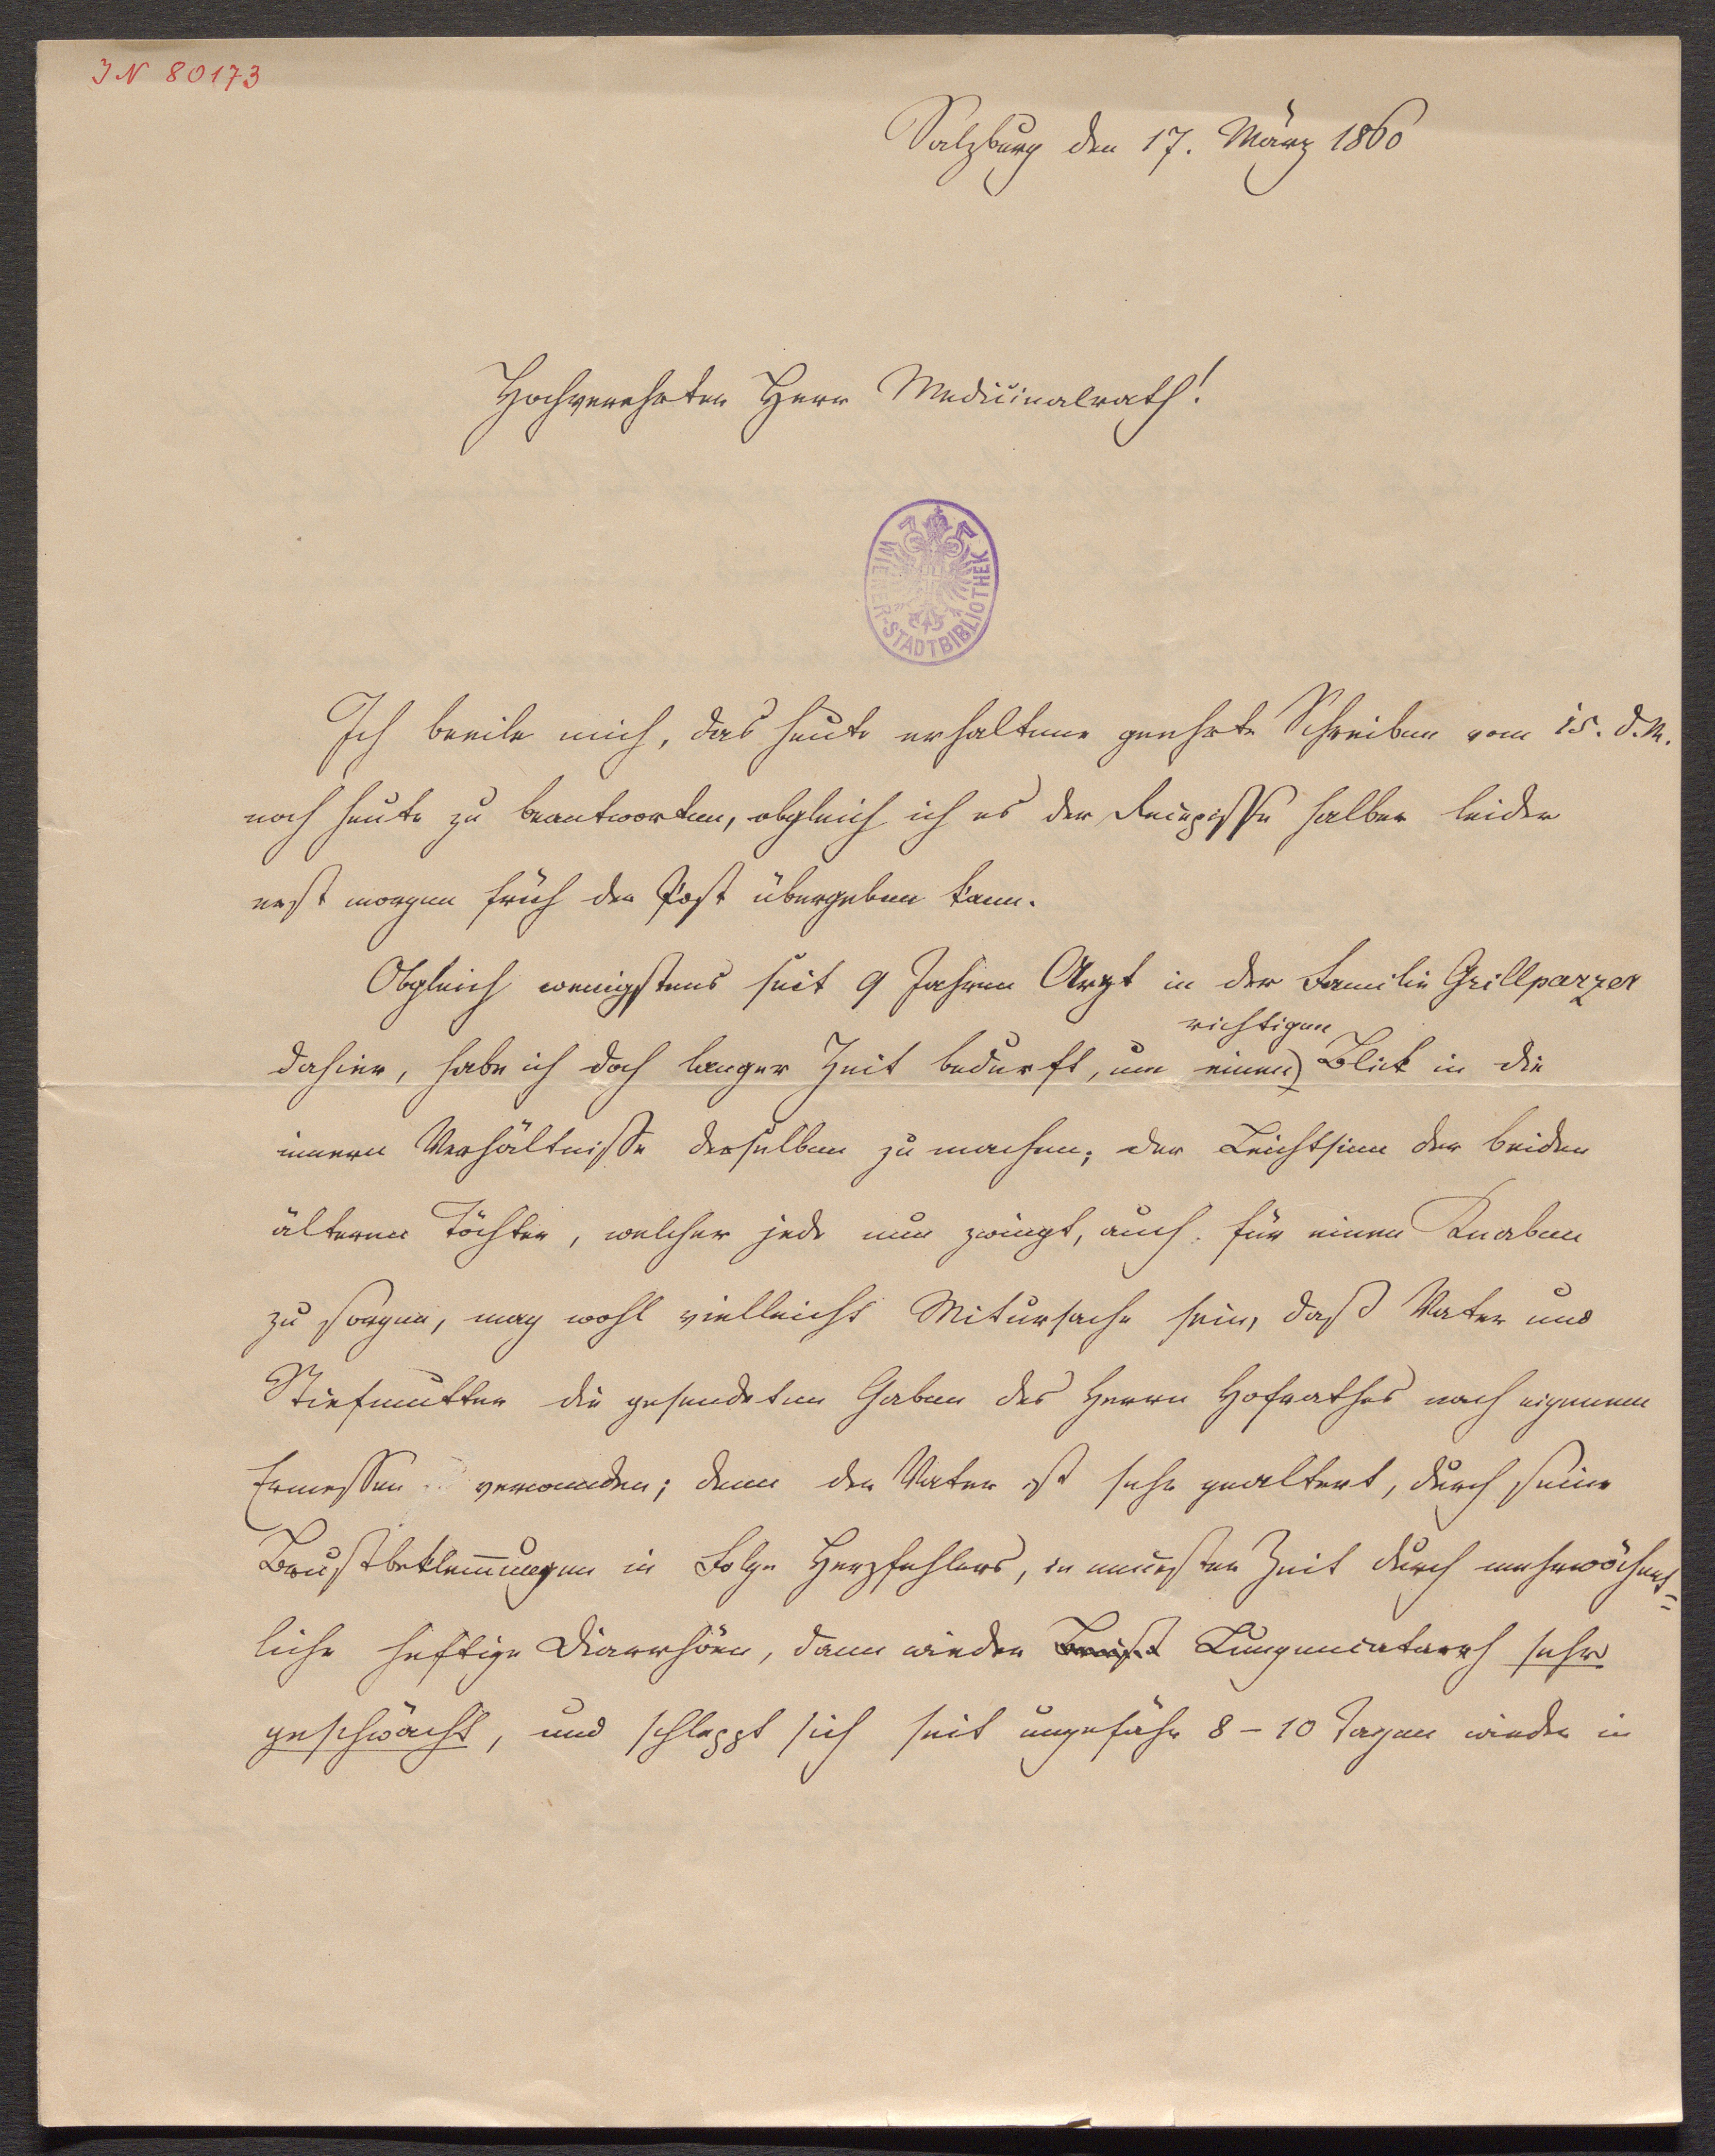 IN 80173
Salzburg den 17. März 1860
Hochverehrter Herr Medicinalrath!
WIENER-STADTBIBLIOTHEK
Ich beeile mich, das heute erhaltene geehrte Schreiben vom 15. d. M.
noch heute zu beantworten, obgleich ich es der Recepisse halber leider
erst morgen früh der Post übergeben kann.
Obgleich wenigstens seit 9 Jahren Arzt in der Familie Grillparzer
richtigen
dahier, habe ich doch langer Zeit bedurft, um einen Blick in die
innern Verhältnisse derselben zu machen; der Leichtsinn der beiden
älteren Töchter, welcher jede nun zwingt, auch für einen Knaben
zu sorgen, mag wohl vielleicht Mitursache sein, daß Vater und
Stiefmutter die gesendeten Gaben des Herrn Hofrathes nach eigenem
Ermessen verwenden; denn der Vater ist sehr gealtert, durch seine
Brustbeklem̅ungen in Folge Herzfehlers, in neuester Zeit durch mehrwöchent=
liche heftige Diarrhöen, dann wieder Brust Lungencatarrh sehr
geschwächt, und schleppt sich seit ungefähr 8 – 10 Tagen wieder in